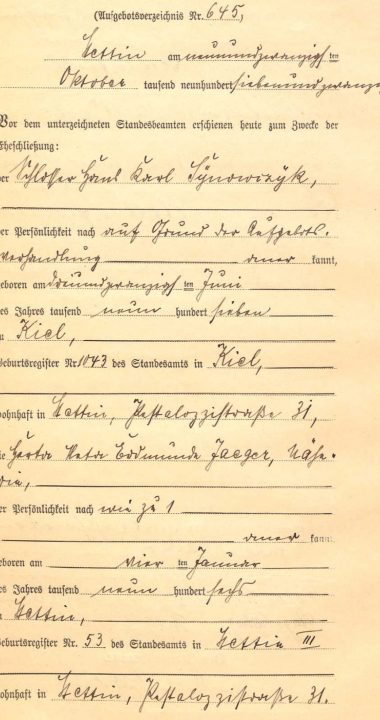 (Aufgebotsverzeichnis Nr. 645,
Stettin am neunundzwanzigsten
Oktober tausend neunhundert siebenundzwanz
Vor dem unterzeichneten Standesbeamten erschienen heute zum Zwecke der
Eheschließung:
er Schlosser Hans Karl
er Persönlichkeit nach auf Grund der Aufgebots-
verhandlung aner kannt,
geboren am dreiundzwanzigsten Juni
es Jahres tausend neun hundert sieben
u Kiel,
Geburtsregister Nr. 1043 des Standesamts in Kiel,
wohnhaft in Stettin, Pestalozzistraße 31,
ie Herta Jaeger, Nähe-
rin,
er Persönlichkeit nach wie zu 1
aner kann
geboren am vier ten Januar
es Jahres tausend neun hundert sechs
u Stettin,
Geburtsregister Nr. 53 des Standesamts in Stettin III
wohnhaft in Stettin, Pestalozzistraße 31.